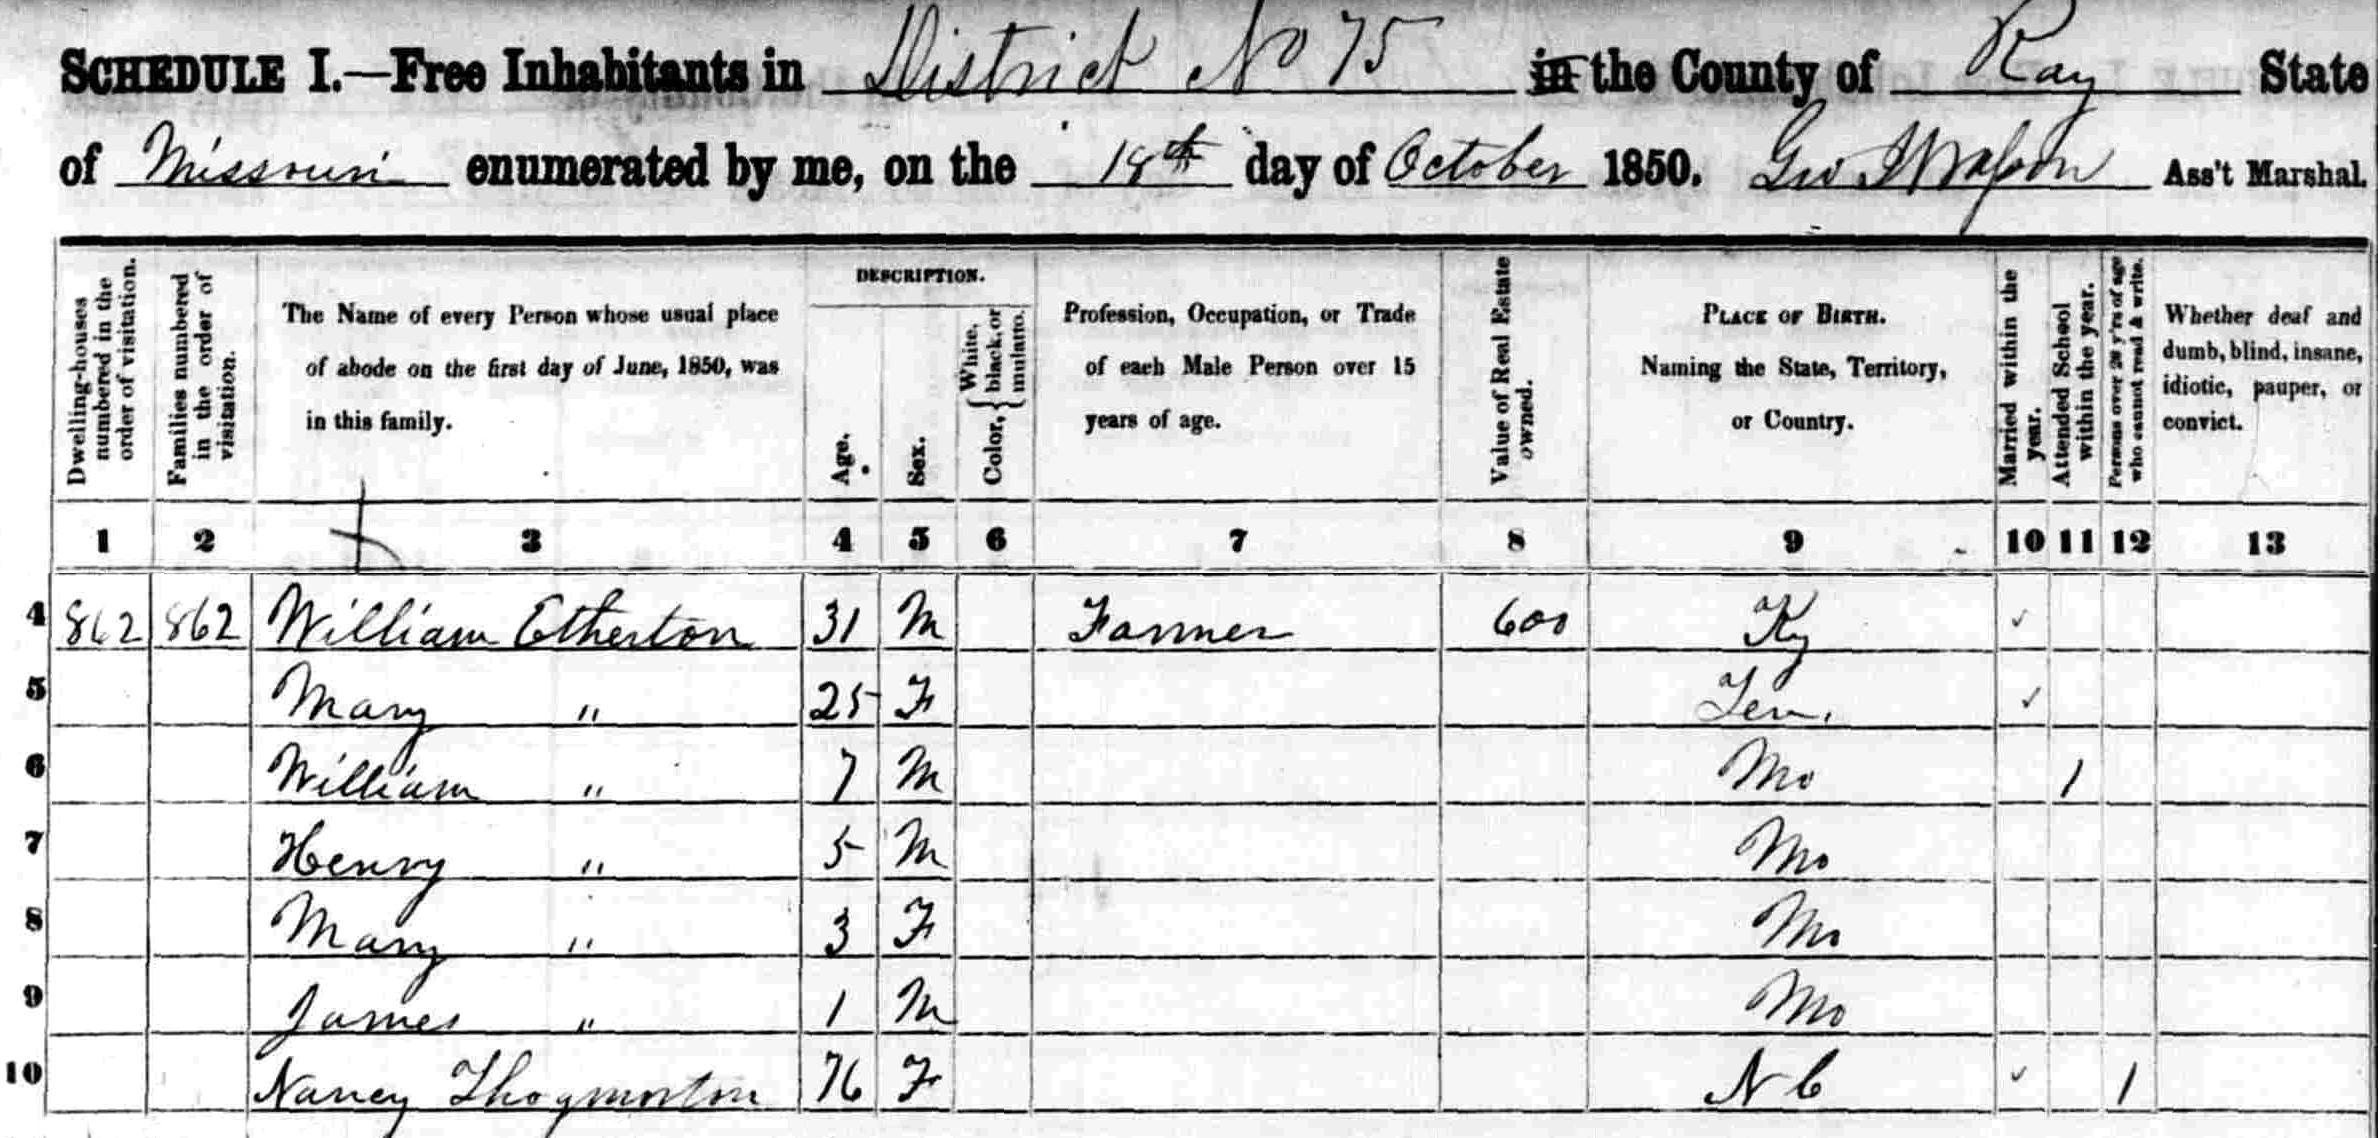 SCHEDULE I.—Free Inhabitants in District No 75 in the County of Ray State
of Missouri enumerated by me, on the 18th day of October 1850. Geo Ass't Marshal.
Dwelling-houses numbered in the order of visitation.
Families numbered in the order of visitation.
The Name of every Person whose usual place
of abode on the first day of June, 1850, was
in this family.
DESCRIPTION.
Age.
Sex.
Color, { White, black, or mulatto.
Profession, Occupation, or Trade
of each Male Person over 15
years of age.
Value of Real Estate owned.
PLACE OF BIRTH.
Naming the State, Territory,
or Country.
Married within the year.
Attended School within the year.
Persons over 20 y'rs of age who cannot read & write.
Whether deaf and
dumb, blind, insane,
idiotic, pauper, or
convict.
1 2 3 4 5 6 7 8 9 10 11 12 13
4 862 862 William Etherton 31 M Farmer 600 Ky ✓
5 Mary " 25 F Ten. ✓
6 William " 7 M Mo 1
7 Henry " 5 M Mo
8 Mary " 3 F Mo
9 James " 1 M Mo
10 Nancy Thogmorton 76 F N C ✓ 1